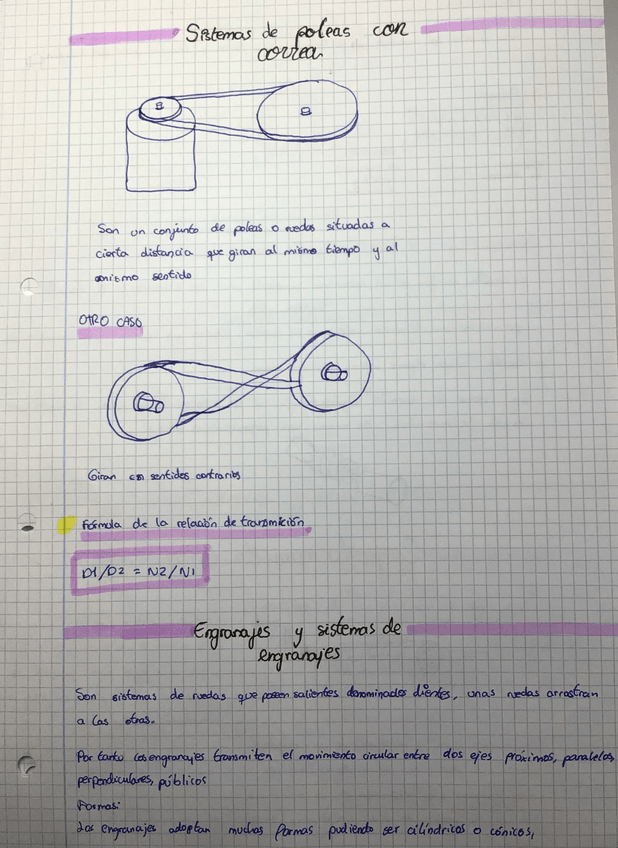 Sistemas de poleas con
correa
Son un conjunto de poleas o ruedas situadas a
cierta distancia que giran al mismo tiempo y al
mismo sentido
OTRO CASO
Giran en sentidos contrarios
Fórmula de la relación de transmición
D1/D2 = N2/N1
Engranajes y sistemas de
engranajes
Son sistemas de ruedas que poseen salientes denominados dientes, unas ruedas arrastran
a las otras.
Por tanto los engranajes transmiten el movimiento circular entre dos ejes próximos, paralelos,
perpendiculares, públicos
Formas:
Los engranajes adoptan muchas formas pudiendo ser cilíndricos o cónicos,